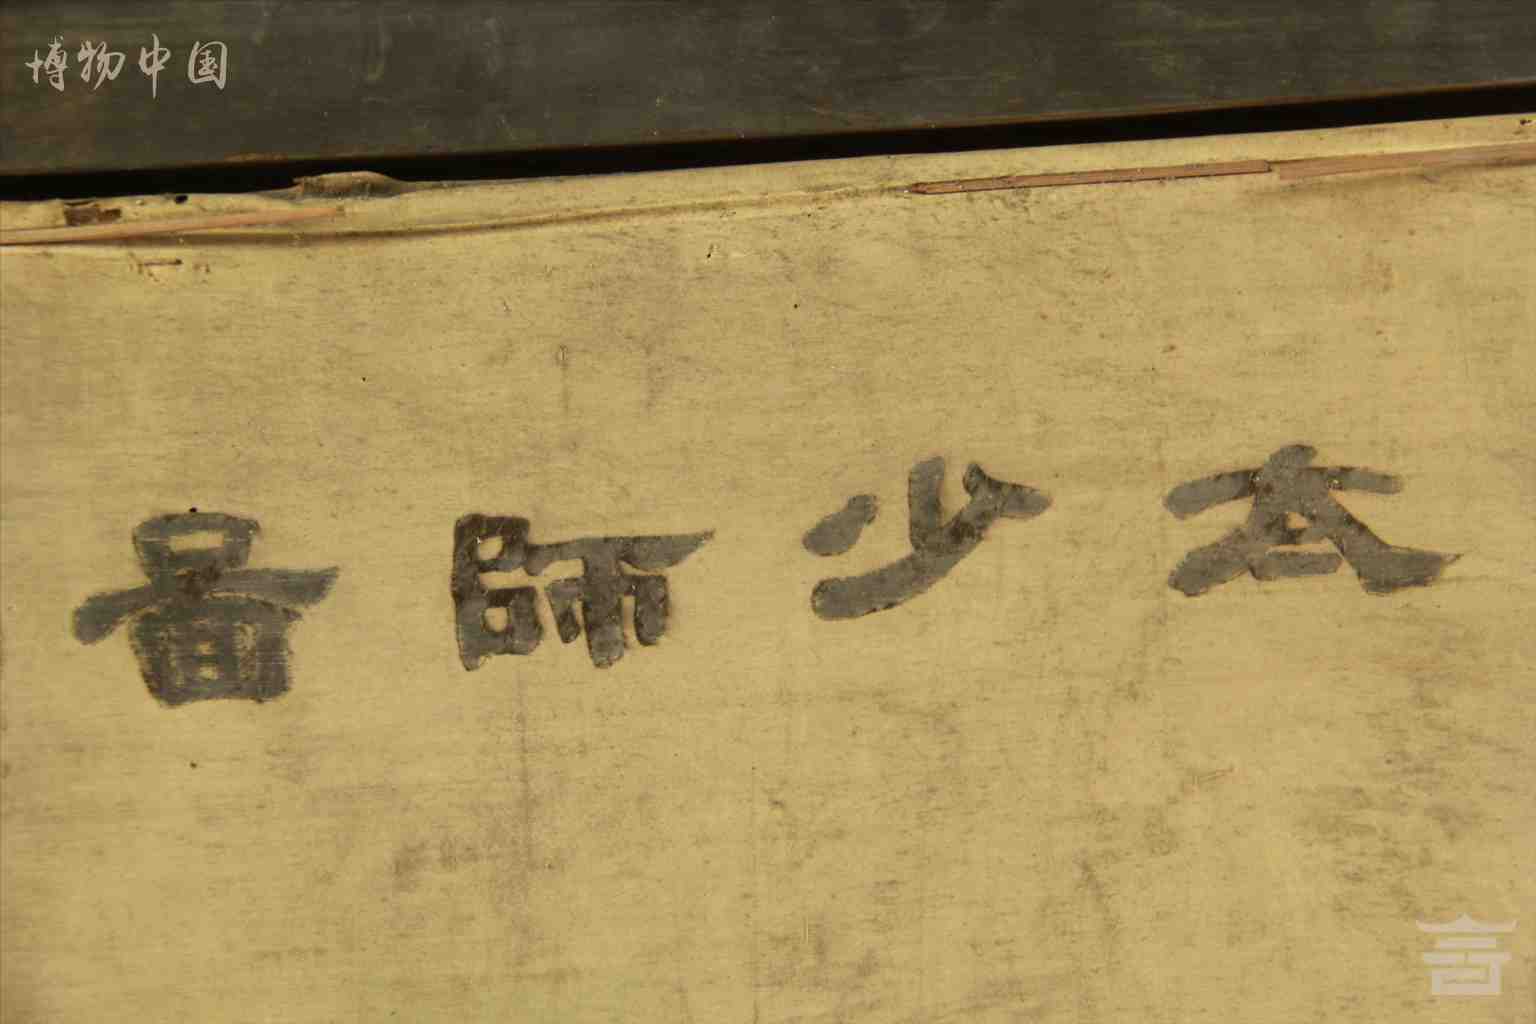 博物中国
太少師啚